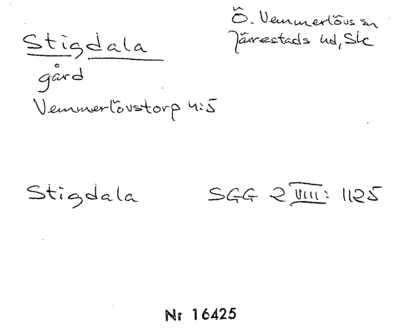 Stigdala
Ö. Vemmerlövs sn
Järrestads hd, Sk
gård
Vemmerlövstorp 4:5
Stigdala SGG 2 VIII: 1125
Nr 16425